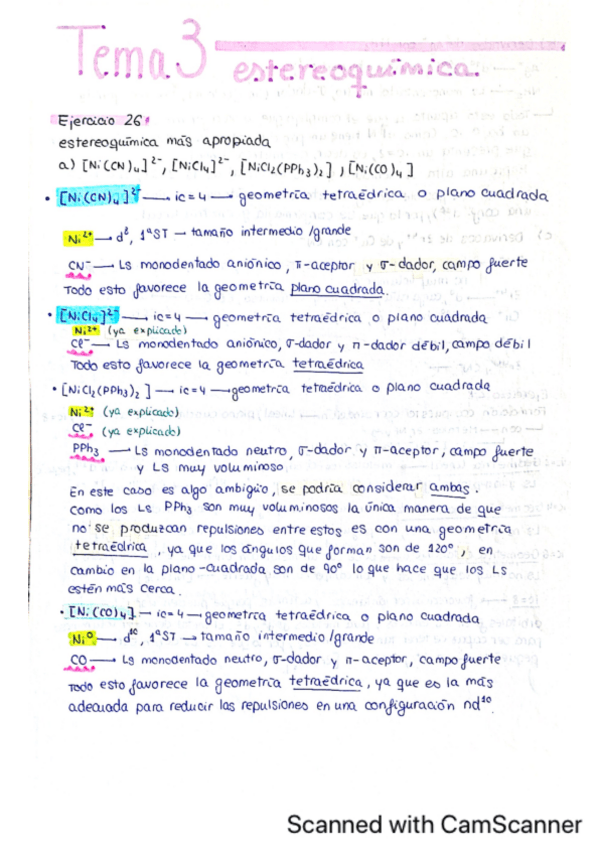 Tema 3
estereoquímica.
Ejercicio 26:
estereoquímica más apropiada
a) [Ni(CN)₄]²⁻, [NiCl₄]²⁻, [NiCl₂(PPh₃)₂], [Ni(CO)₄]
• [Ni(CN)₄]²⁻ → ic=4 → geometría tetraédrica o plano cuadrada
Ni²⁺ → d⁸, 1ªST → tamaño intermedio/grande
CN⁻ → Ls monodentado aniónico, π-aceptor y σ-dador, campo fuerte
Todo esto favorece la geometría plano cuadrada.
• [NiCl₄]²⁻ → ic=4 → geometría tetraédrica o plano cuadrada
Ni²⁺ (ya explicado)
Cl⁻ → Ls monodentado aniónico, σ-dador y π-dador débil, campo débil
Todo esto favorece la geometría tetraédrica
• [NiCl₂(PPh₃)₂] → ic=4 → geometría tetraédrica o plano cuadrada
Ni²⁺ (ya explicado)
Cl⁻ (ya explicado)
PPh₃ → LS monodentado neutro, σ-dador y π-aceptor, campo fuerte
y LS muy voluminoso.
En este caso es algo ambigüo, se podría considerar ambas.
como los Ls PPh₃ son muy voluminosos la única manera de que
no se produzcan repulsiones entre estos es con una geometría
tetraédrica, ya que los ángulos que forman son de 120°, en
cambio en la plano-cuadrada son de 90° lo que hace que los LS
estén más cerca.
• [Ni(CO)₄] → ic=4 → geometría tetraédrica o plano cuadrada
Ni⁰ → d¹⁰, 1ªST → tamaño intermedio/grande
CO → Ls monodentado neutro, σ-dador y π-aceptor, campo fuerte
Todo esto favorece la geometría tetraédrica, ya que es la más
adecuada para reducir las repulsiones en una configuración nd¹⁰.
Scanned with CamScanner